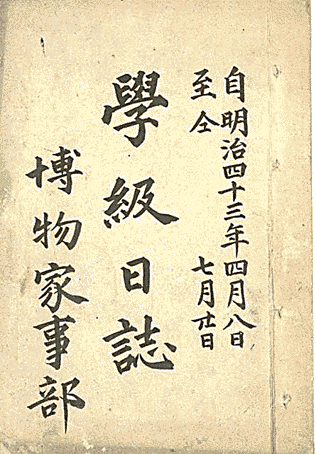 自明治四十三年四月八日
至仝七月廿日
學級日誌
博物家事部